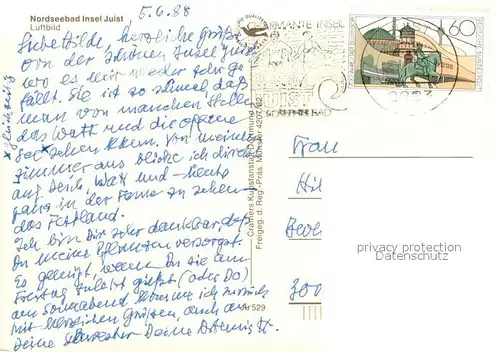 Nordseebad Insel Juist
Luftbild
5.6.88
Liebe Hilde, herzliche Grüße
von der schönen Insel Juist
wo es mir wieder sehr ge-
fällt. Sie ist so schmal, daß
man von manchen Stellen
das Watt und die offene
See x sehen kann. Von meinem
Zimmer aus blicke ich direkt
auf Deich, Watt und – heute
ganz in der Ferne zu sehen –
das Festland.
Ich bin Dir sehr dankbar, daß
Du meine Pflanzen versorgst.
Es genügt, wenn Du sie am
Freitag zuletzt gießt (oder Do)
am Sonnabend komme ich zurück
Mit herzlichen Grüßen, auch an
Deine Schwester Deine
x gleichzeitig
CHARMANTE INSEL
JUIST
NORDSEEHEILBAD
60
DEUTSCHE BUNDESPOST
Cramers Kunstanstalt, Dortmund
Freigeg. d. Reg.-Präs. Münster 4207/82
Ju 529
Frau
privacy protection
DATENSCHUTZ
300